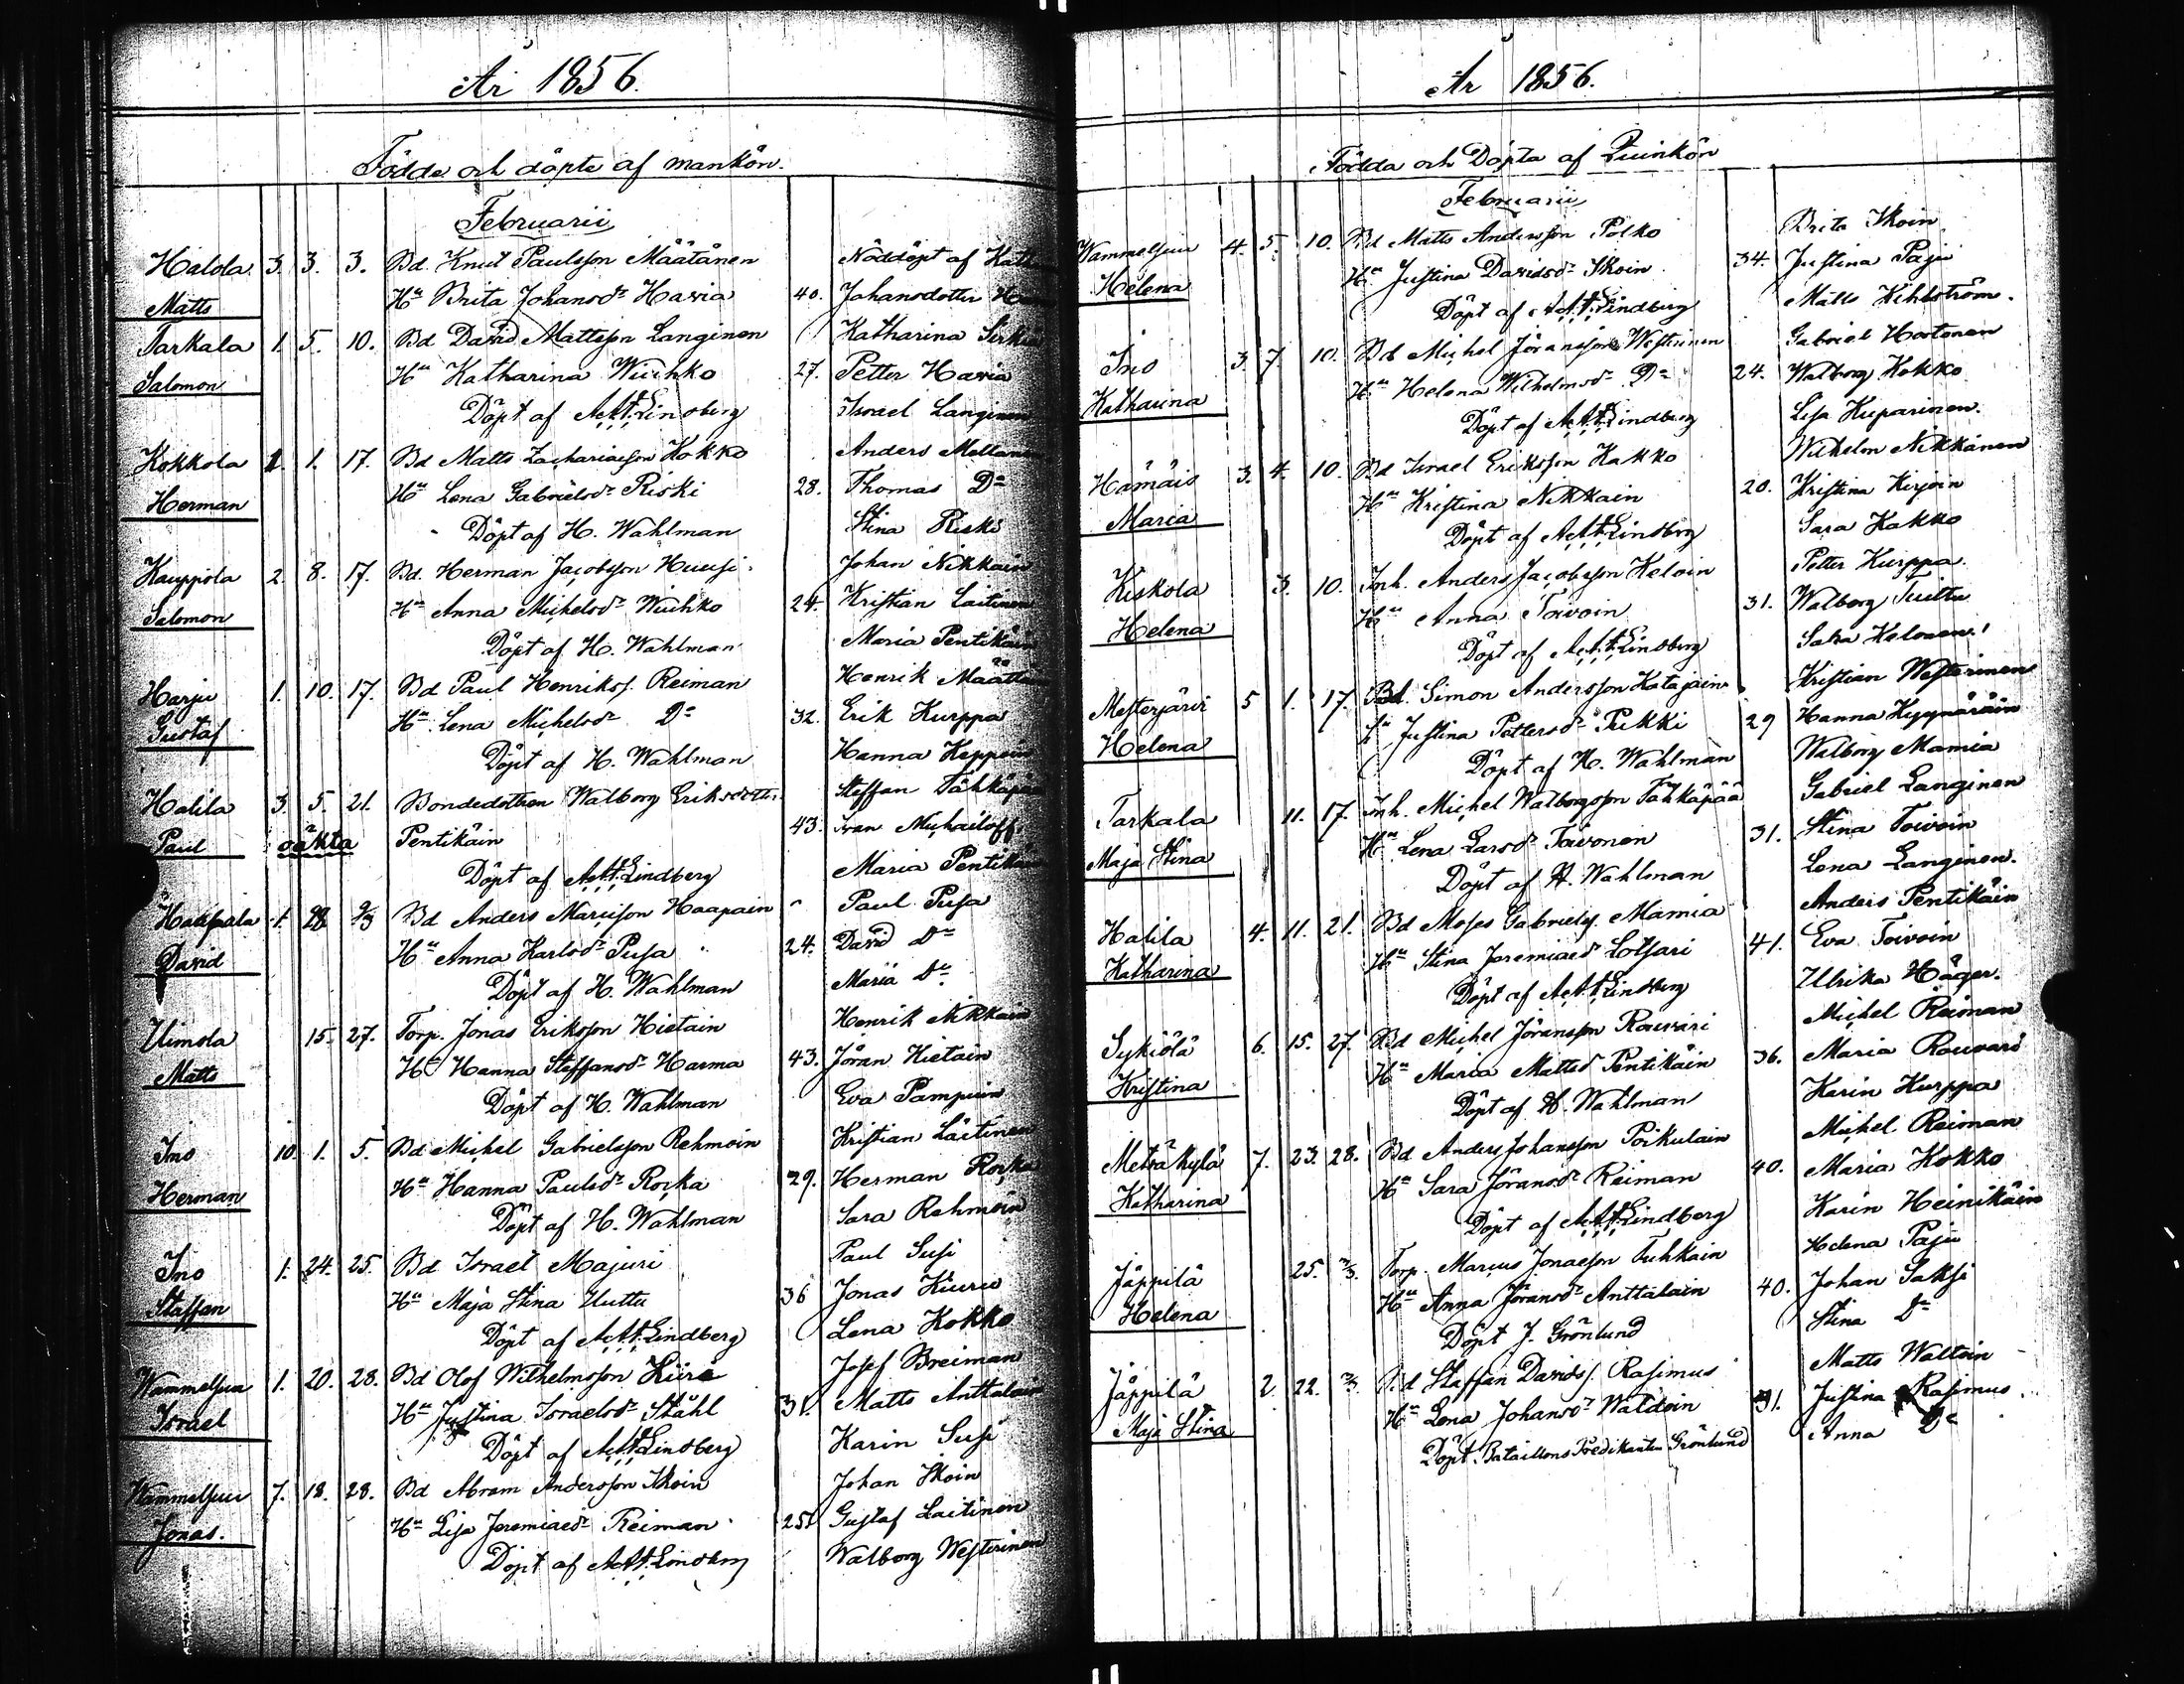 År 1856.
Födde och döpte af mankön.
Februarii
Halola 3. 3. 3. Bd. Knut Paulsson Määtänen Nöddöpt af
Matts Hu Brita Johansdr Hawia 40. Johansdotter
Tarkala 1. 5. 10. Bd David Mattsson Langinen Katharina
Salomon Hu Katharina Wuohko 27. Petter Hawia
Döpt af A.A.Lindberg Israel Langinen
Kokkola 1. 1. 17. Bd Matts Zachariasson Kokko Anders
Herman Hu Lena Gabrielsdr Riski 28. Thomas Do
Döpt af H. Wahlman Stina Riski
Kauppola 2. 8. 17. Bd. Herman Jacobsson Huusi Johan Nikkain
Salomon Hu Anna Michelsdr Wuohko 24. Kristian Laitinen
Döpt af H. Wahlman Maria Pentikäin
Harju 1. 10. 17. Bd Paul Henrikss. Reiman Henrik
Gustaf Hu Lena Michelsdr Do 32. Erik Kurppa
Döpt af H. Wahlman Hanna
Halila 3. 5. 21. Bondedottren Walborg Eriksdotter Steffan Tähkäpää
Paul oäkta Pentikäin 43. Ivan Michailoff
Döpt af A.A.Lindberg Maria Pentikäin
Haapala 1. 28 2/3 Bd Anders Marcusson Haapain Paul Pusa
David Hu Anna Karlsdr Pusa 24. David Do
Döpt af H. Wahlman Maria Do
Uimola 15. 27. Torp. Jonas Eriksson Hietain Henrik Nikkain
Matts Hu Hanna Steffansdr Harma 43. Jöran Hietain
Döpt af H. Wahlman Eva
Ino 10. 1. 5. Bd Michel Gabrielsson Rehmoin Kristian Laitinen
Herman Hu Hanna Paulsdr Rocka 29. Herman Rocka
Döpt af H. Wahlman Sara Rehmoin
Ino 1. 24. 25. Bd Israel Majuri Paul Susi
Staffan Hu Maja Stina Huttu 36 Jonas Kiuru
Döpt af A.A.Lindberg Lena Kokko
Wammelsuu 1. 20. 28. Bd Olof Wilhelmsson Kiira Josef Breiman
Israel Hu Justina Israelsdr Ståhl 31. Matts Anttalain
Döpt af A.A.Lindberg Karin Susi
Wammelsuu 7. 18. 28. Bd Abram Andersson Ikoin Johan Ikoin
Jonas. Hu Lisa Jeremiaedr Reiman 25. Gustaf Laitinen
Döpt af A.A.Lindberg Walborg Westerinen
År 1856.
Födda och Döpta af Quinkön
Februarii
Wammelsuu 4. 5. 10. Bd Matts Andersson Polko Brita Ikoin
Helena Hu Justina Davidsdr Ikoin 34. Justina Paju
Döpt af A.A.Lindberg Matts Kihlström.
Ino 3. 7. 10. Bd Michel Jöransson Westerinen Gabriel Hortonen
Katharina Hu Helena Wilhelmsdr Do 24. Walborg Kokko
Döpt af A.A.Lindberg Lisa Kuparinen.
Hämäis 3. 4. 10. Bd Israel Eriksson Kakko Wilhelm Nikkänen
Maria Hu Kristina Nikkain 20. Kristina Kirjoin
Döpt af A.A.Lindberg Sara Kakko
Kiskola 3. 10. Inh. Anders Jacobsson Keloin Petter Kurppa.
Helena Hu Anna Toivoin 31. Walborg Tuittu
Döpt af A.A.Lindberg Kelonen.
Mesterjärvi 5 1. 17. Bd. Simon Andersson Katajain Kristian Westerinen
Helena Hu Justina Pettersdr Pukki 29 Hanna Kyynäräin
Döpt af H. Wahlman Walborg Mamia
Tarkala 11. 17. Inh. Michel Walborgsson Tähkäpää Gabriel Langinen
Maja Stina Hu Lena Larsdr Toivonen 31. Stina Toivoin
Döpt af H. Wahlman Lena Langinen.
Halila 4. 11. 21. Bd Moses Gabrielss. Mamia Anders Pentikäin
Katharina Hu Stina Jeremiaedr Lotjari 41. Eva Toivoin
Döpt af A.A.Lindberg Ulrika Häger.
Sykiölä 6. 15. 27. Bd Michel Jöransson Rouvari Michel Reiman
Kristina Hu Maria Mattsdr Pentikäin 36. Maria Rouvari
Döpt af H. Wahlman Karin Kurppa
Metsäkylä 7. 23. 28. Bd Anders Johansson Poikulain Michel Reiman
Katharina Hu Sara Jöransdr Reiman 40. Maria Kokko
Döpt af A.A.Lindberg Karin Heinikäin
Jäppilä 25. 2/3. Torp. Marcus Jonaesson Tuhkain Helena Paju
Helena Hu Anna Jöransdr Anttalain 40. Johan Saksi
Döpt J. Grönlund Stina Do
Jäppilä 2. 22. 2/3. Bd Staffan Davidss. Rasimus Matts Waltoin
Maja Stina Hu Lena Johansdr Waldoin 31. Justina Rasimus
Döpt Bataillons Predikanten Grönlund Anna Do